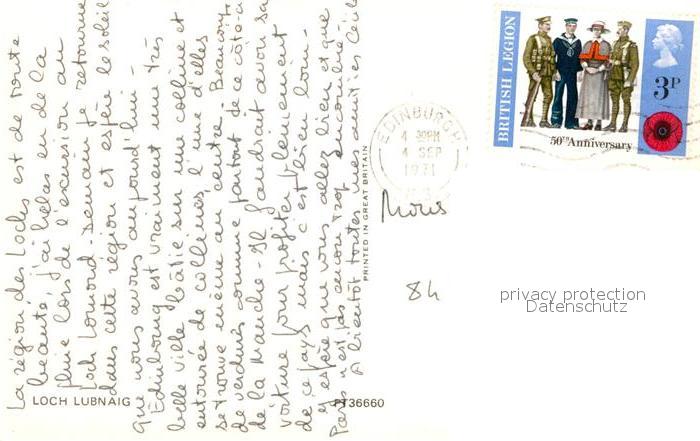 La région des Lochs est de toute
beauté, j'ai hélas eu de la
pluie lors de l'excursion au
Loch Lomond - Demain je retourne
dans cette région et espère le soleil
que nous avons aujourd'hui -
Edinbourg est vraiment très
belle ville bâtie sur une colline et
entourée de collines, l'une d'elles
se trouve même au centre. Beaucoup
de verdure comme partout de ce côté-ci
de la Manche - Il faudrait avoir sa
voiture pour profiter pleinement
de ce pays mais c'est bien loin -
espère que vous allez bien et que
Paris n'est pas encore trop encombré
A bientôt toutes mes amitiés Cécile
LOCH LUBNAIG
PT36660
PRINTED IN GREAT BRITAIN
EDINBURGH
4 30PM
4 SEP
1971
BRITISH LEGION
3P
50TH Anniversary
84
privacy protection
Datenschutz